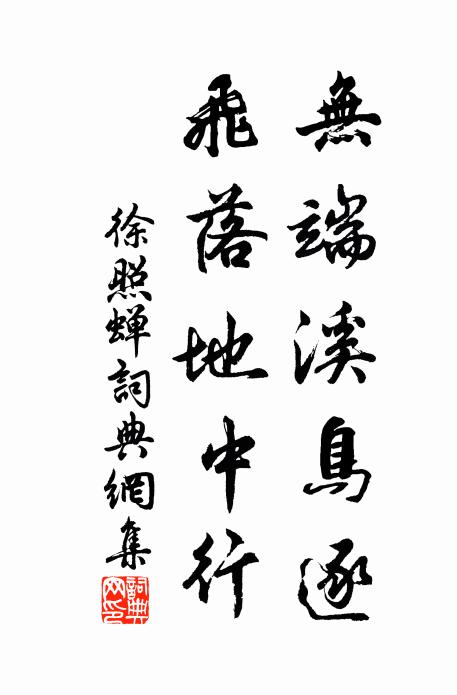 無端溪鳥逐
飛落地中行
徐照蝉詞典網集
詞典网印